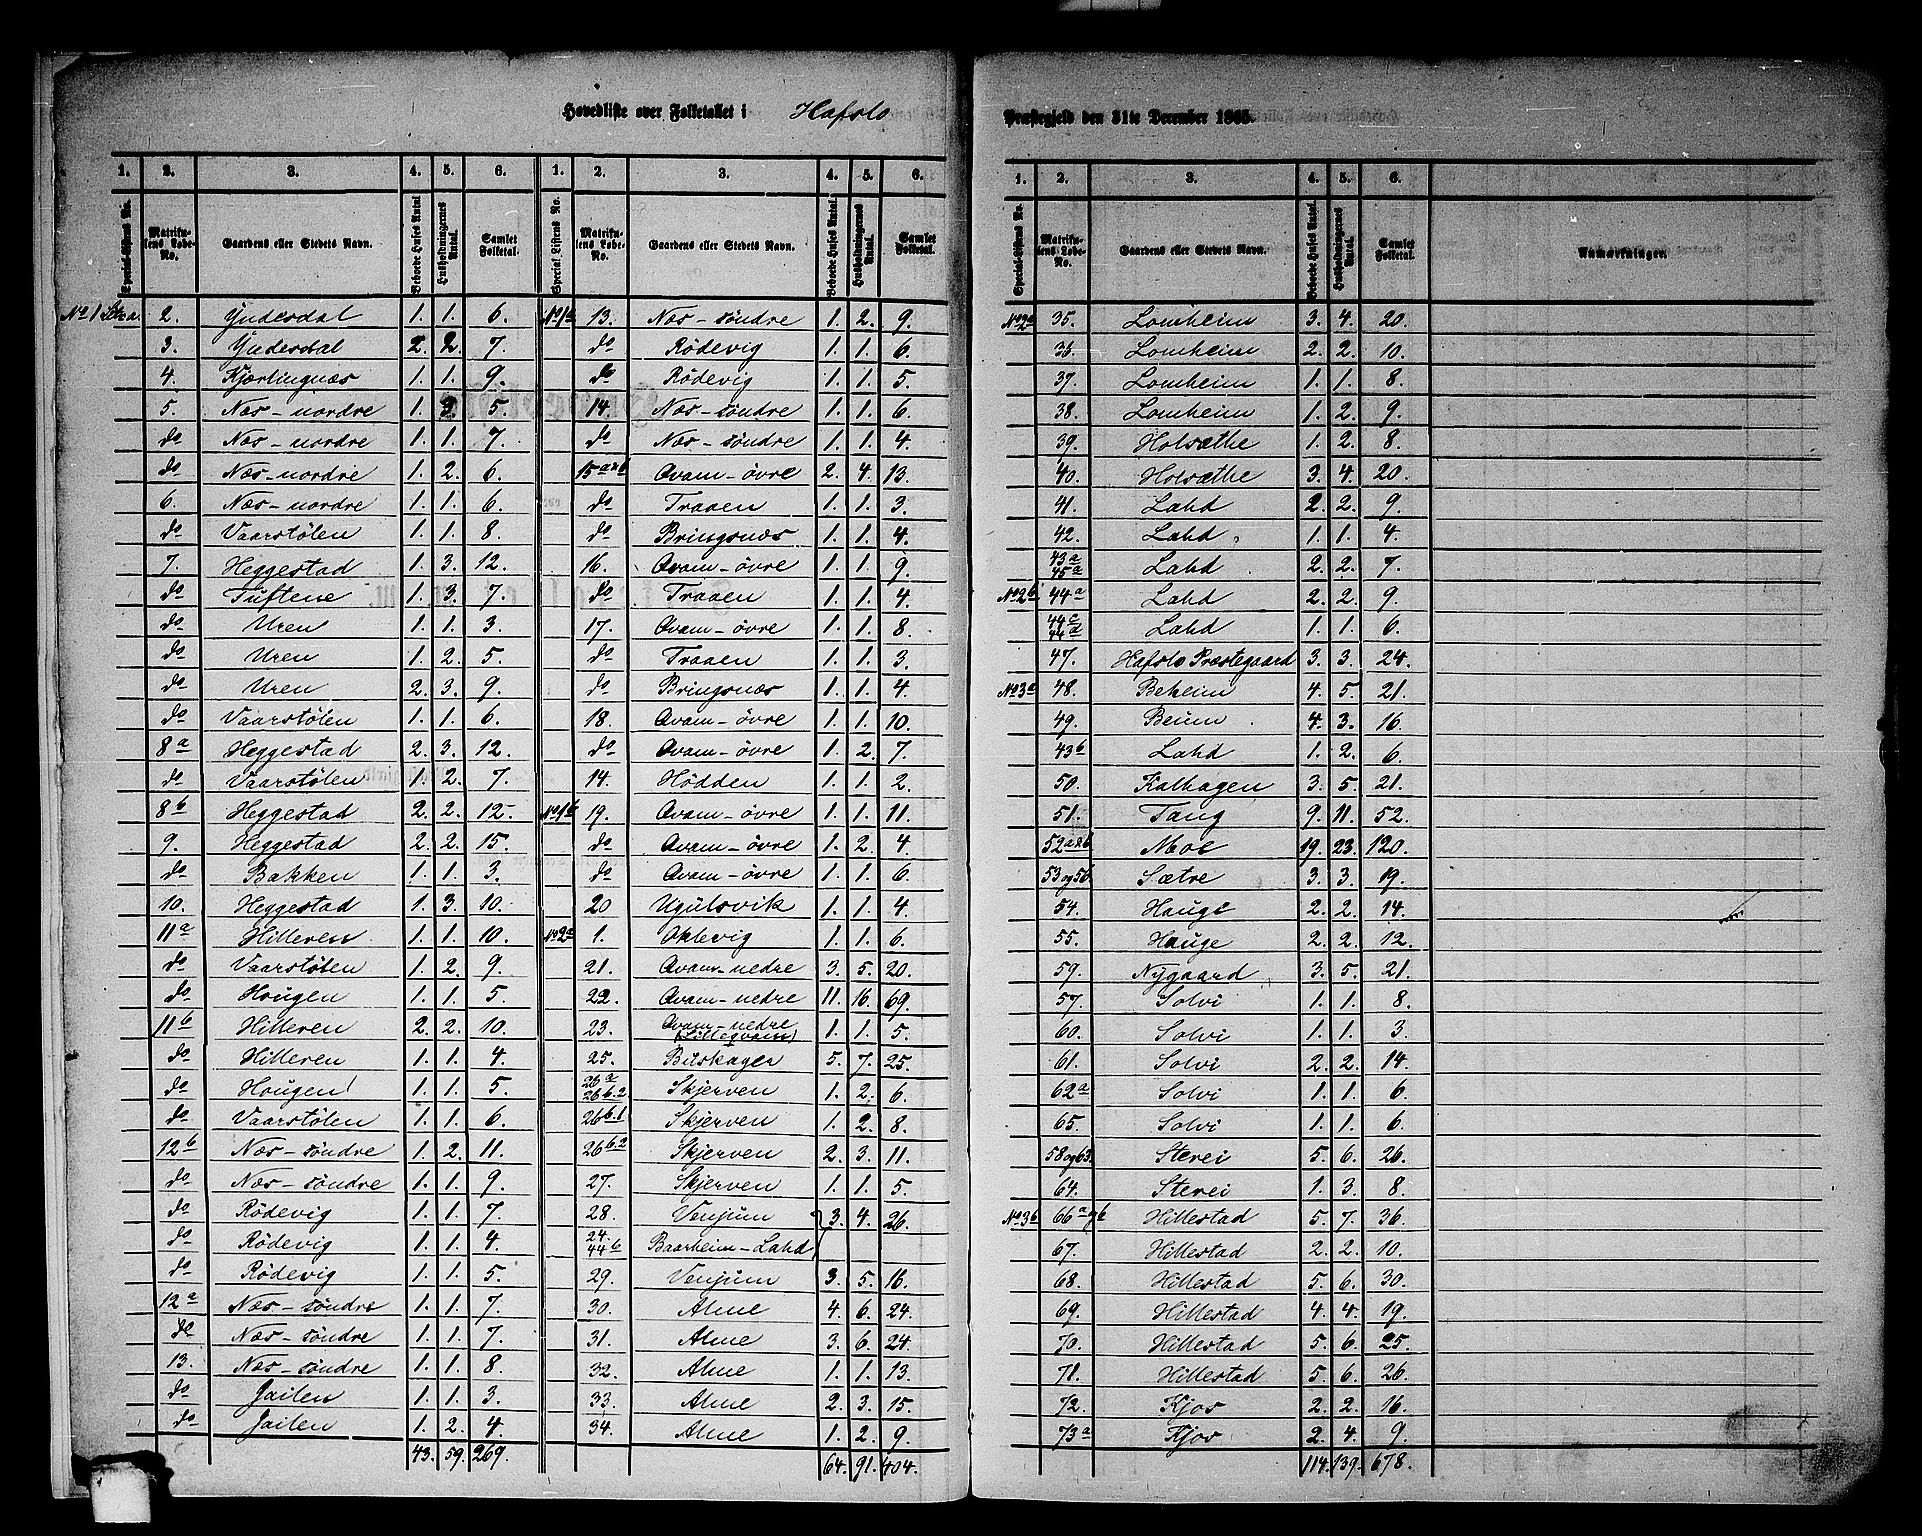 Hovedliste over Folketallet i Hafslo Præstegjeld den 31te December 1865.
1. 2. 3. 4. 5. 6.
Special-Listens No. Matrikulens Løbe-No. Gaardens eller Stedets Navn. Beboede Huses Antal Husholdningernes Antal. Samlet Folketal.
No 1 Litr a. 2. Yndesdal 1. 1. 6.
3. Yndesdal 2. 2. 7.
4. Kjærlingnæs 1. 1. 9.
5. Næs-nordre 1. 2. 5.
do Næs-nordre 1. 1. 7.
do Næs-nordre 1. 2. 6.
6. Næs-nordre 1. 1. 6.
do Vaarstölen 1. 1. 8.
7. Heggestad 1. 3. 12.
do Tuftene 1. 3. 7.
do Uren 1. 1. 3.
do Uren 1. 2. 5.
do Uren 2. 3. 9.
do Vaarstölen 1. 1. 6.
8a Heggestad 2. 3. 12.
do Vaarstölen 1. 2. 7.
8b Heggestad 2. 2. 12.
9. Heggestad 2. 2. 15.
do Bakken 1. 1. 3.
10. Heggestad 1. 3. 10.
11a Hilleren 1. 1. 10.
do Vaarstölen 1. 2. 9.
do Hougen 1. 1. 5.
11b Hilleren 2. 2. 10.
do Hilleren 1. 1. 4.
do Hougen 1. 1. 5.
do Vaarstölen 1. 1. 6.
12b Næs-söndre 1. 2. 11.
do Næs-söndre 1. 1. 9.
do Rödevig 1. 1. 7.
do Rödevig 1. 1. 4.
do Rödevig 1. 1. 5.
12a Næs-söndre 1. 1. 7.
do Næs-söndre 1. 1. 7.
13. Næs-söndre 1. 1. 8.
do Jailen 1. 1. 3.
do Jailen 1. 2. 4.
43. 59. 269.
1. 2. 3. 4. 5. 6.
Special Listens No. Matrikulens Løbe-No. Gaardens eller Stedets Navn. Beboede Huses Antal. Husholdningernes Antal. Samlet Folketal.
No 1a 13. Næs-söndre 1. 2. 9.
do Rödevig 1. 1. 6.
do Rödevig 1. 1. 5.
14. Næs-söndre 1. 1. 6.
do Næs-söndre 1. 1. 4.
15 a&b Qvam-övre 2. 4. 13.
do Traaen 1. 1. 3.
do Bringsnæs 1. 1. 4.
16. Qvam-övre 1. 1. 9.
do Traaen 1. 1. 4.
17. Qvam-övre 1. 1. 8.
do Traaen 1. 1. 3.
do Bringsnæs 1. 1. 4.
18. Qvam-övre 1. 1. 10.
do Qvam-övre 1. 2. 7.
14. Hödden 1. 1. 2.
No 1b 19. Qvam-övre 1. 1. 11.
do Qvam-övre 1. 2. 4.
do Qvam-övre 1. 1. 6.
20 Ugulsvik 1. 1. 4.
No 2a 1. Oklevig 1. 1. 6.
21. Qvam-nedre 3. 5. 20.
22. Qvam-nedre 11. 16. 69.
23. Qvam-nedre (Lilleqvam) 1. 1. 5.
25. Buskager 5. 7. 25.
26a 26b.2 Skjerven 1. 2. 6.
26b.1 Skjerven 1. 2. 8.
26b.2 Skjerven 2. 3. 11.
27. Skjerven 1. 1. 5.
28. Venjum 3. 4. 26.
24. 44b Baarheim-Lahd
29. Venjum 3. 5. 16.
30. Alme 4. 6. 24.
31. Alme 3. 6. 24.
32. Alme 1. 1. 13.
33. Alme 2. 3. 15.
34. Alme 1. 2. 9.
64. 91. 404.
1. 2. 3. 4. 5. 6.
Special-Listens No. Matrikulens Løbe-No. Gaardens eller Stedets Navn. Beboede Huses Antal. Husholdningernes Antal. Samlet Folketal. Anmærkninger.
No 2a 35. Lomheim 3. 4. 20.
36. Lomheim 2. 2. 10.
37. Lomheim 1. 1. 8.
38. Lomheim 1. 2. 9.
39. Holsæthe 1. 2. 8.
40. Holsæthe 3. 4. 20.
41. Lahd 2. 2. 9.
42. Lahd 1. 1. 4.
43a 45a Lahd 2. 2. 7.
No 2b 44a Lahd 2. 2. 9.
44c 44d Lahd 1. 1. 6.
47. Hafslo Præstegaard 3. 3. 24.
No 3a 48. Beheim 4. 5. 21.
49. Beim 4. 3. 16.
43b Lahd 1. 2. 6.
50. Kalhagen 3. 5. 21.
51. Tang 9. 11. 52.
52 a&b Moe 19. 23. 120.
53 og 56. Sætre 3. 3. 19.
54. Haugi 2. 2. 14.
55. Hauge 2. 2. 12.
59. Nygaard 3. 5. 21.
57. Solvi 1. 1. 8.
60. Solvi 1. 1. 3.
61. Solvi 2. 2. 14.
62a Solvi 1. 1. 6.
65. Solvi 1. 1. 6.
58 og 63. Sterei 5. 6. 26.
64. Sterei 1. 3. 8.
No 3b 66 a og b Hillestad 5. 7. 36.
67. Hillestad 2. 2. 10.
68. Hillestad 5. 6. 30.
69. Hillestad 4. 4. 19.
70. Hillestad 5. 6. 25.
71. Hillestad 5. 6. 26.
72. Kjos 2. 2. 16.
73a Kjos 2. 4. 9.
114. 139. 678.